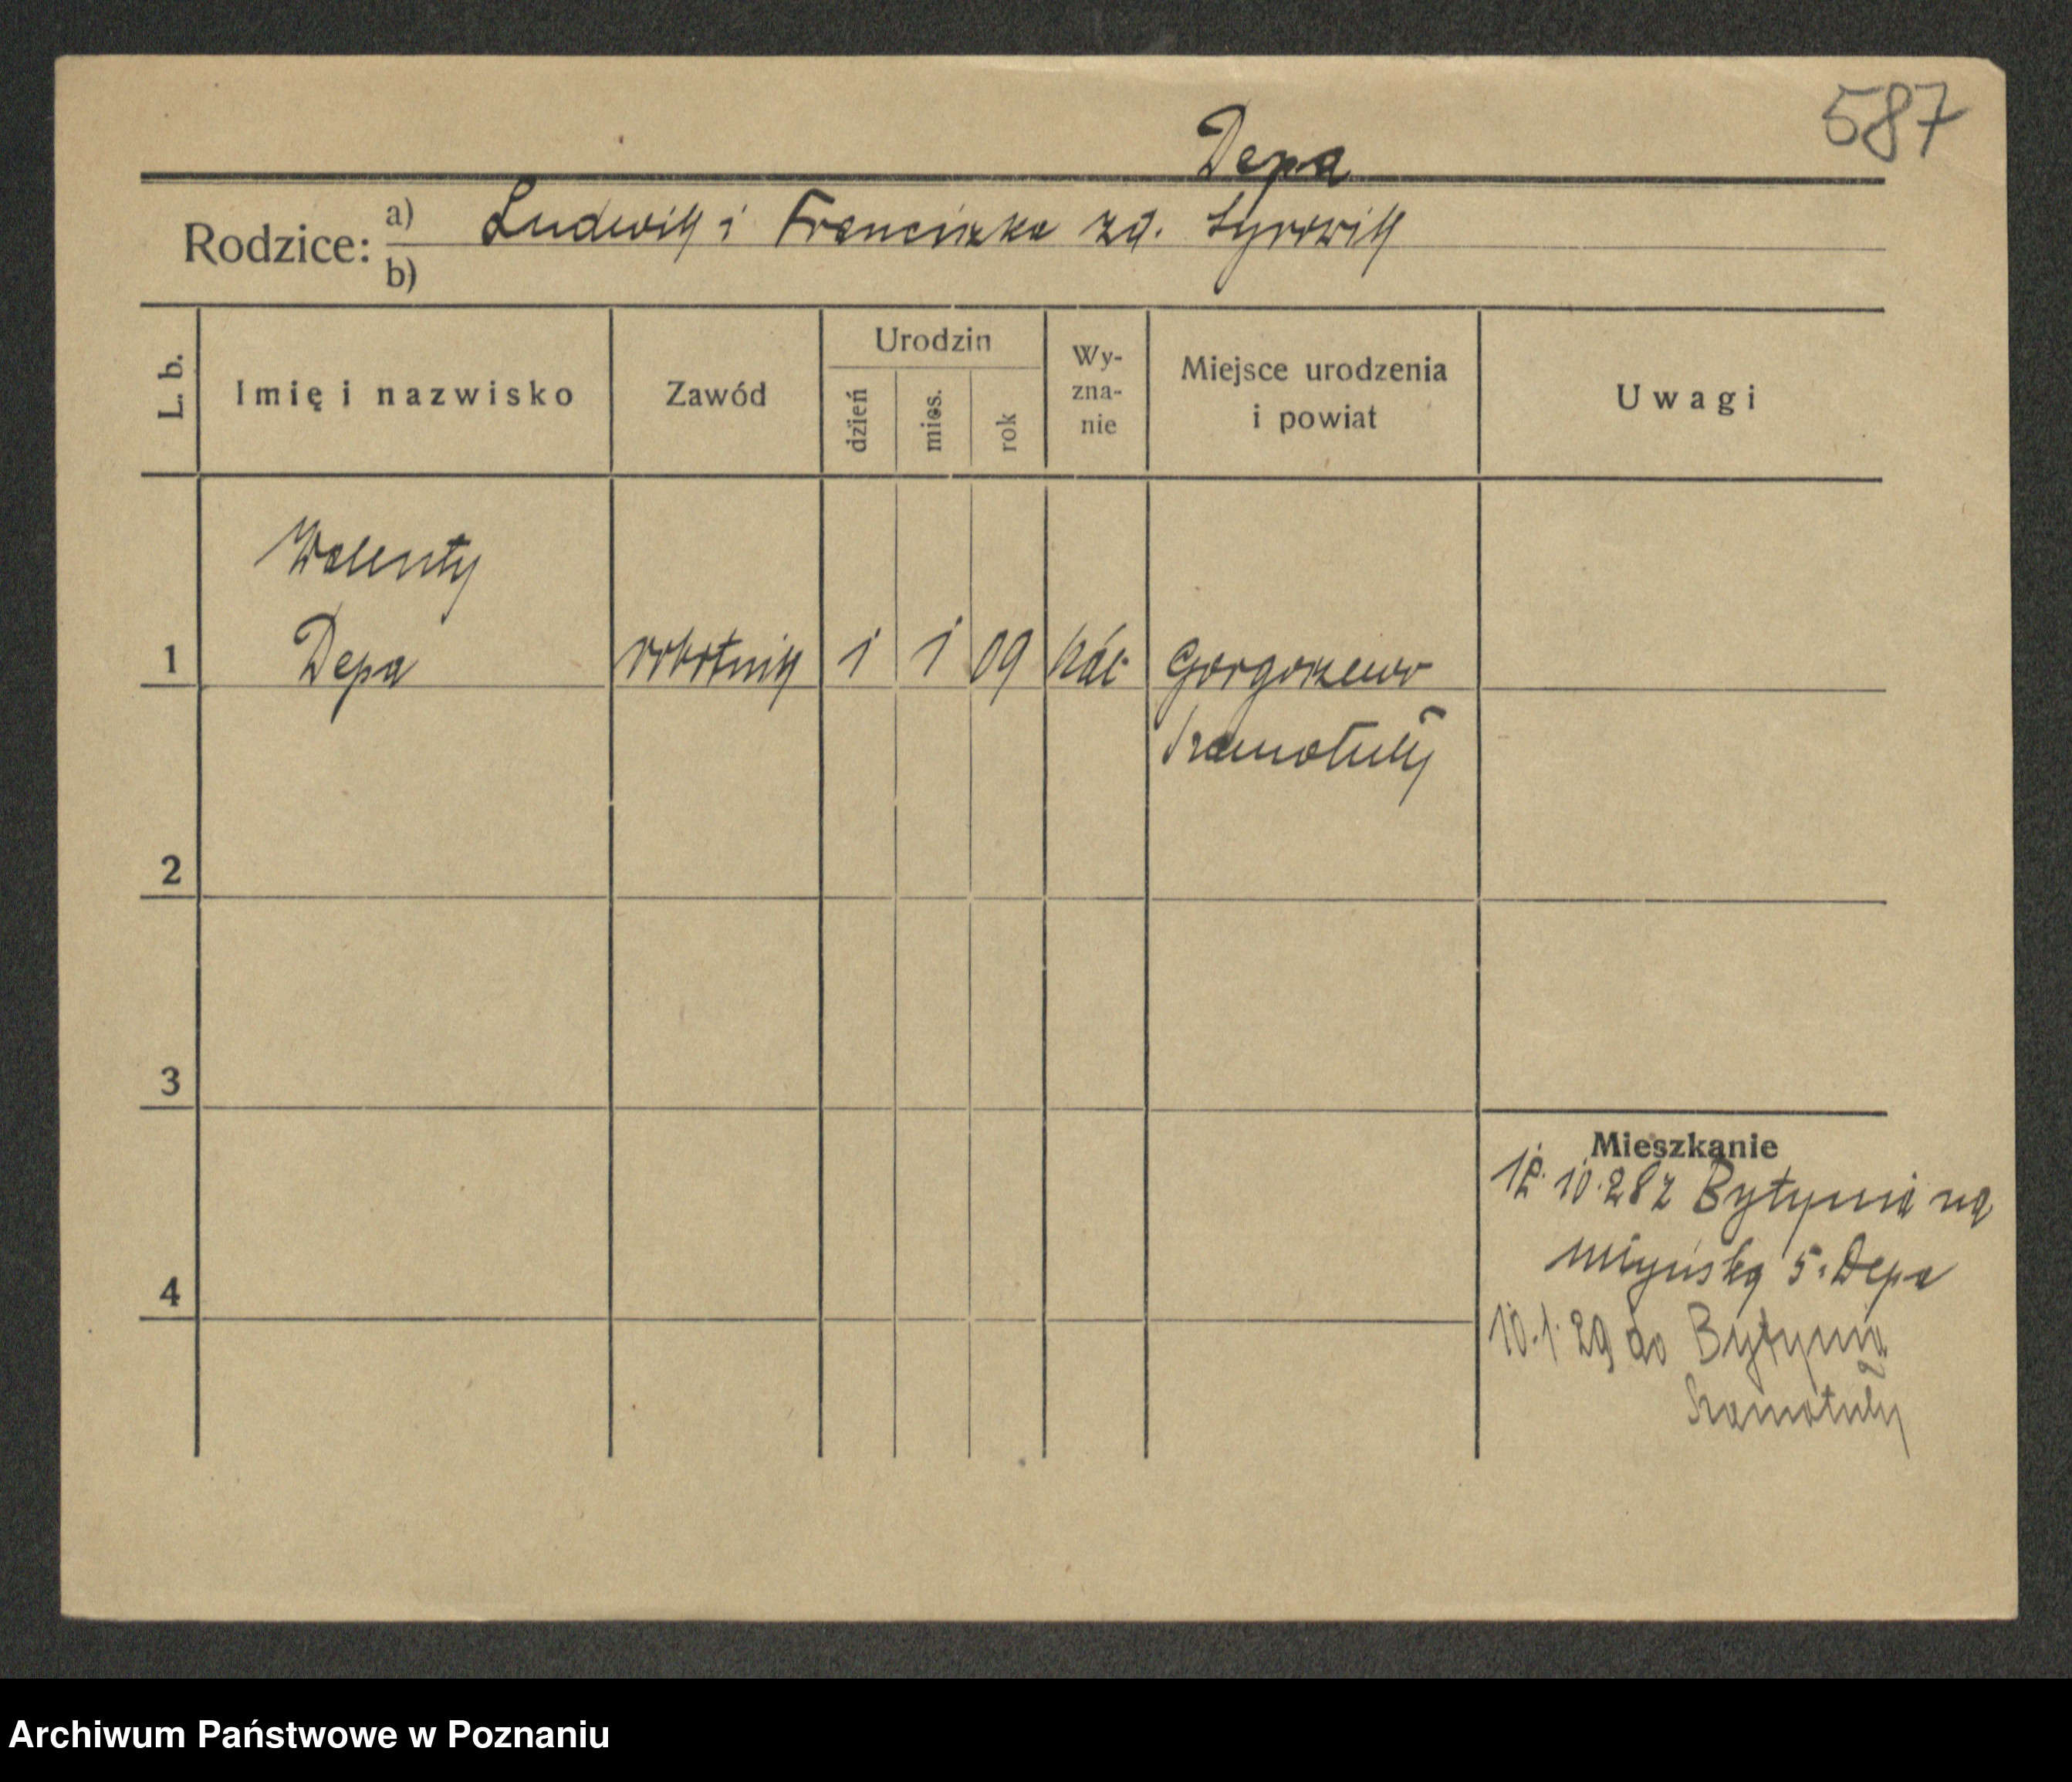 587
Depa
Rodzice: a) Ludwik i Franciszka zd.
b)
L. b.
Imię i nazwisko
Zawód
Urodzin
dzień
mies.
rok
Wy-
zna-
nie
Miejsce urodzenia
i powiat
Uwagi
Walenty
1 Depa robotnik 1 1 09 kat Gorgoszewo
Szamotuły
2
3
Mieszkanie
12.10.28 z Bytynia na
Młyńską 5. Depa
4
10.1.29 do Bytynia
Szamotuły
Archiwum Państwowe w Poznaniu